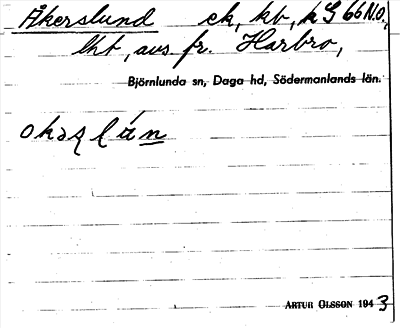 Åkerslund ek, kb, k G 66 N.O.,
lht, avs. fr. Harbro,
Björnlunda sn, Daga hd, Södermanlands län.
ARTUR OLSSON 1943